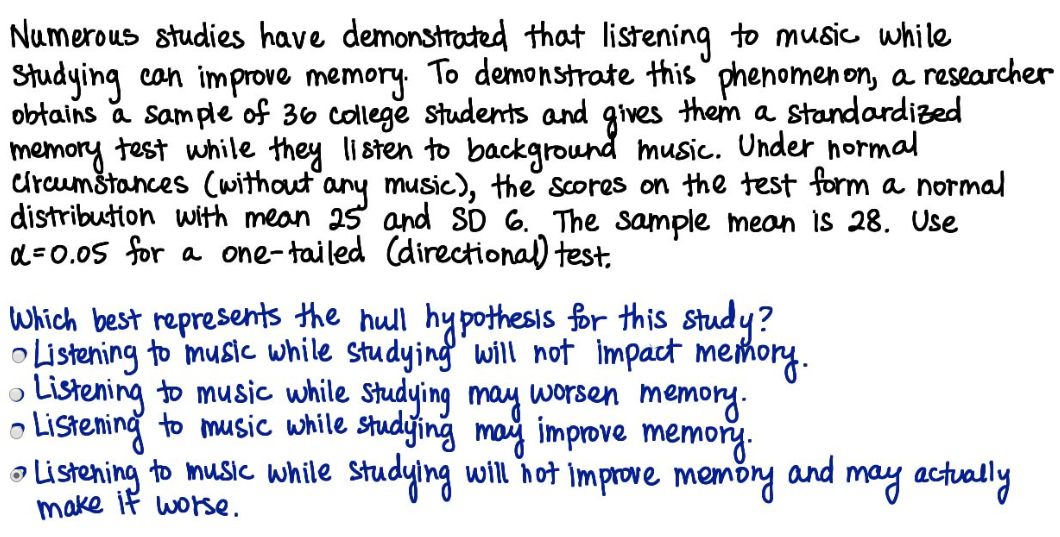 Numerous studies have demonstrated that listening to music while
studying can improve memory. To demonstrate this phenomenon, a researcher
obtains a sample of 36 college students and gives them a standardized
memory test while they listen to background music. Under normal
circumstances (without any music), the scores on the test form a normal
distribution with mean 25 and SD 6. The sample mean is 28. Use
α=0.05 for a one-tailed (directional) test.
Which best represents the null hypothesis for this study?
Listening to music while studying will not impact memory.
Listening to music while studying may worsen memory.
Listening to music while studying may improve memory.
Listening to music while studying will not improve memory and may actually
make it worse.